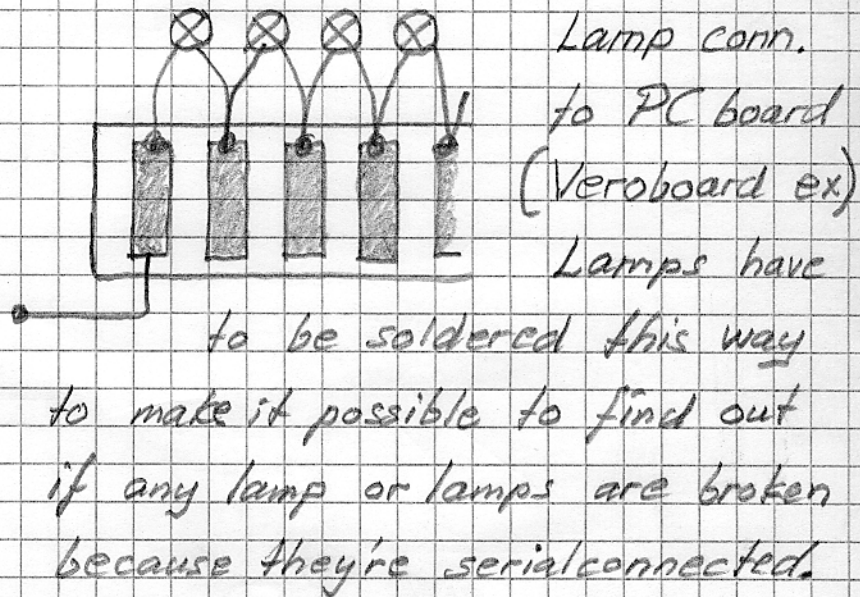 Lamp conn.
to PC board
(Veroboard ex)
Lamps have
to be soldered this way
to make it possible to find out
if any lamp or lamps are broken
because they're serialconnected.